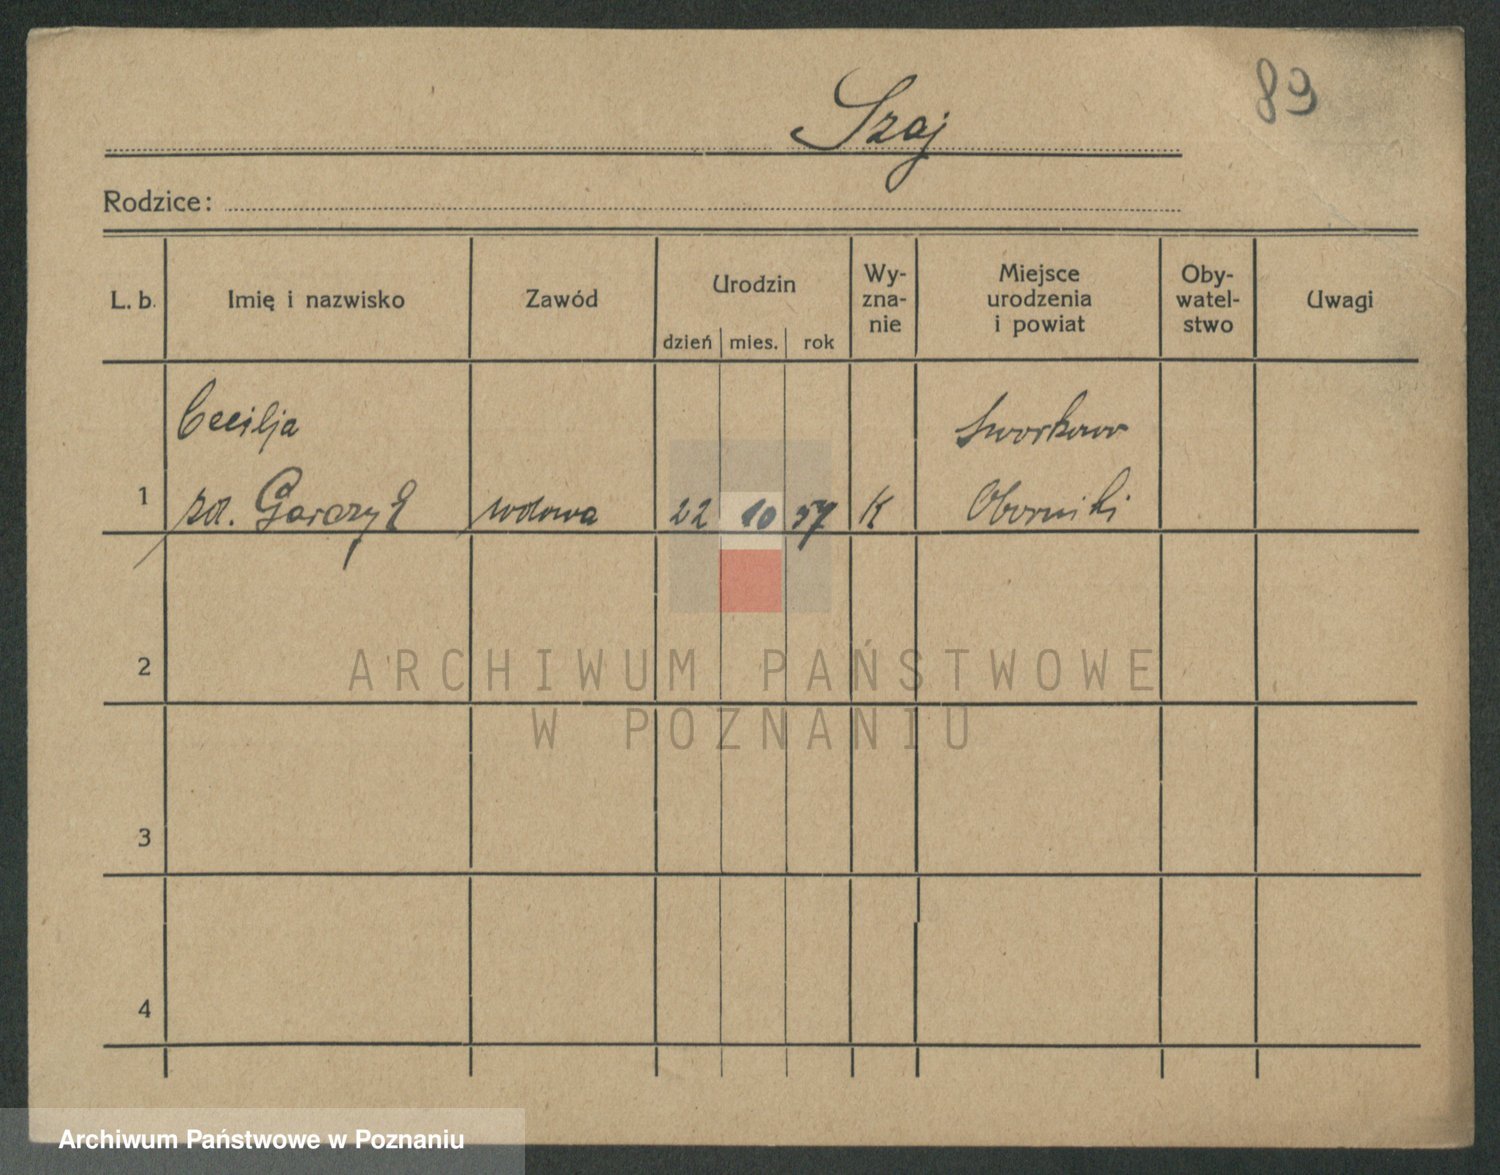 89
Szaj
Rodzice:
L. b.
Imię i nazwisko
Zawód
Urodzin
dzień
mies.
rok
Wy-
zna-
nie
Miejsce
urodzenia
i powiat
Oby-
watel-
stwo
Uwagi
Cecilja
Sworkowo
1
zd. Garczyk
wdowa
22
10
57
K
Oborniki
2
3
4
ARCHIWUM PAŃSTWOWE
W POZNANIU
Archiwum Państwowe w Poznaniu